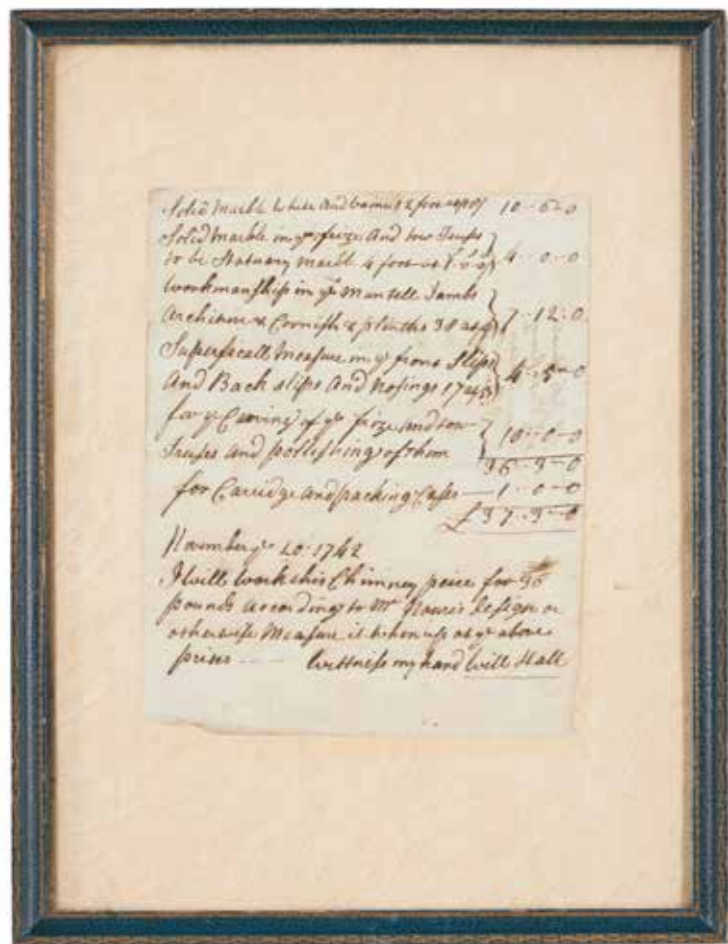 Solid Marble white And 12 foot 10-6-0
Solid Marble in ye frize And tow Truses
to be Statuary marbl 4 foot at 4-0-0
workmanship in ye Mantell Jambs
Architrive & Cornish & plinths 38 at 7-12-0
Superficall Measure in ye front Slips
And Back slips And Nosings 17 4-5-0
for ye Carving of ye frize And tow
Truses and pollishing of them 10-0-0
36-3-0
for Carridge and packing Cases — 1-0-0
£37-3-0
November ye 20-1742
I will work this Chimney peice for 36
pounds according to Mr design or
otherwise Measure it when up at ye above
prises — Wittness my hand Will Hall